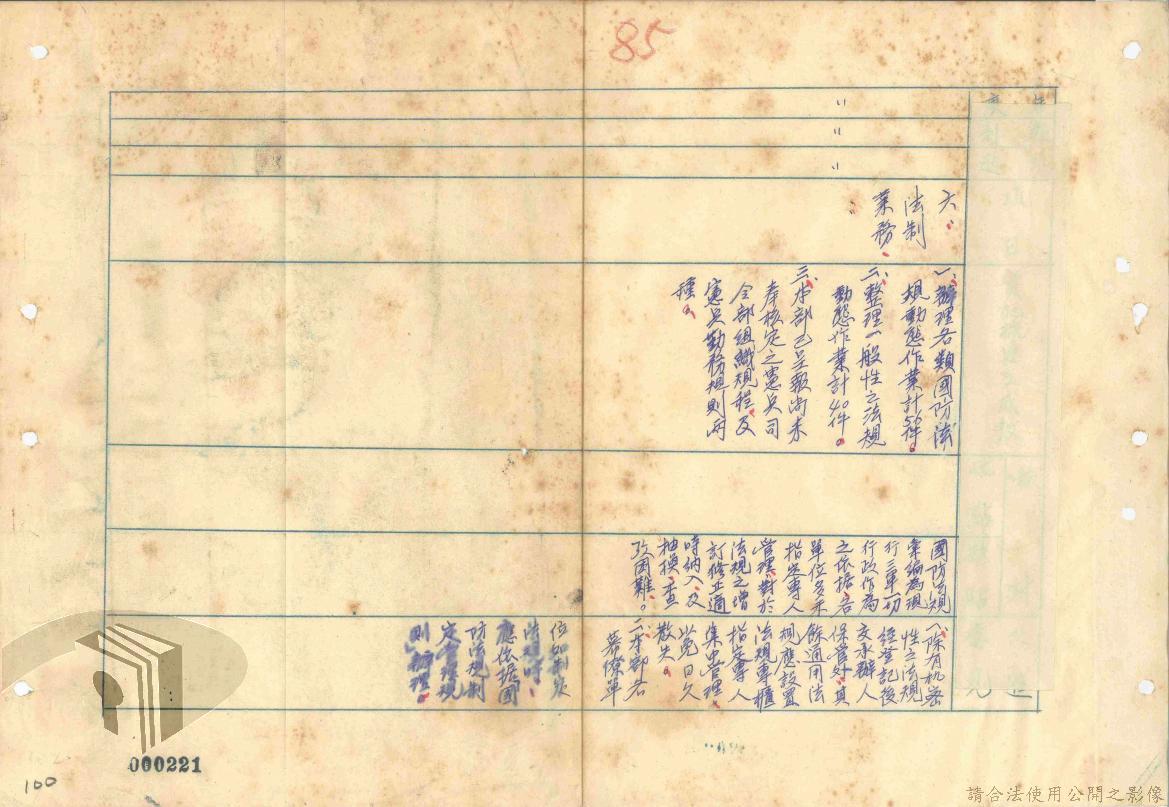 85
〃
〃
〃
六、
法制
業務、
一、辦理各類國防法
規動態作業計56件。
二、整理一般性之法規
動態作業計40件。
三、本部已呈報尚未
奉核定之憲兵司
令部組織規程及
憲兵勤務規則兩
種。
國防法規
彙編為現
行三軍一切
行政作為
之依據、各
單位多未
指定專人
管理、對於
法規之增
訂修正適
時納入、及
抽換、查
攷困難。
一、除有機密
性之法規
經登記後
交承辦人
保管外、其
餘通用法
規應設置
法規專櫃
指定專人
集中管理、
以免日久
散失。
二、本部各
幕僚單
位如制定
法規時、
應依據國
防法規制
定管理規
則辦理。
000221
100
請合法使用公開之影像